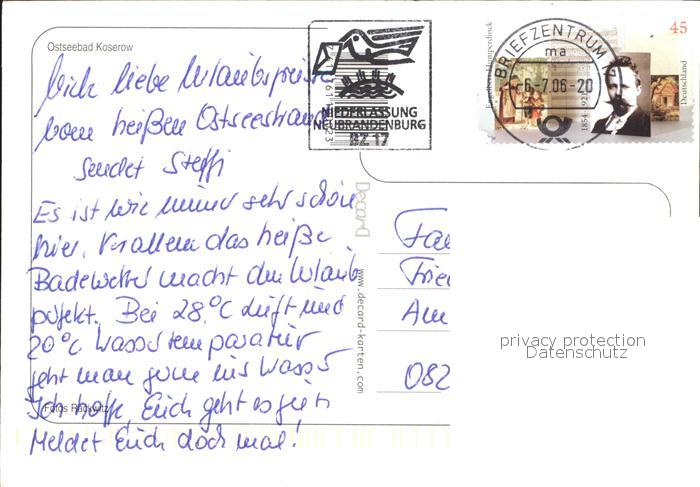 Ostseebad Koserow
Viele liebe Urlaubsgrüße
vom heißen Ostseestrand
sendet Steffi
Es ist wie immer sehr schön
hier. Vor allem das heiße
Badewetter macht den Urlaub
perfekt. Bei 28°C Luft und
20°C Wassertemperatur
geht man gerne ins Wasser
Ich hoffe, Euch geht es gut
Meldet Euch doch mal!
Fotos Rackwitz
Decard
www.decard-karten.com
NIEDERLASSUNG
NEUBRANDENBURG
BZ 17
BRIEFZENTRUM 17
ma
-6.-7.06-20
Engelbert Humperdinck
1854-1921
45
Deutschland
Fa
Frie
Am
082
privacy protection
Datenschutz